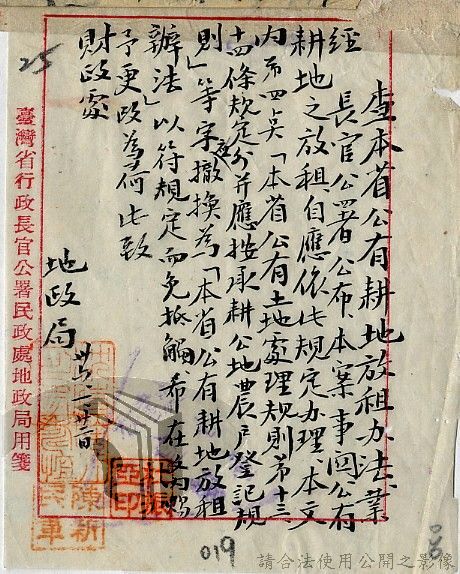 查本省公有耕地放租办法業
經
長官公署公布本案事関公有
耕地之放租自應依此規定办理本文
內第四頁「本省公有土地處理規則第十三
十四條規定分并應按承耕公地農戶登記規
則」等字應撤換為「本省公有耕地放租
辦法」以符規定而免抵觸希在文內賜
予更改為荷此致
財政處
地政局
臺灣省行政長官公署民政處地政局用箋
25
019
請合法使用公開之影像